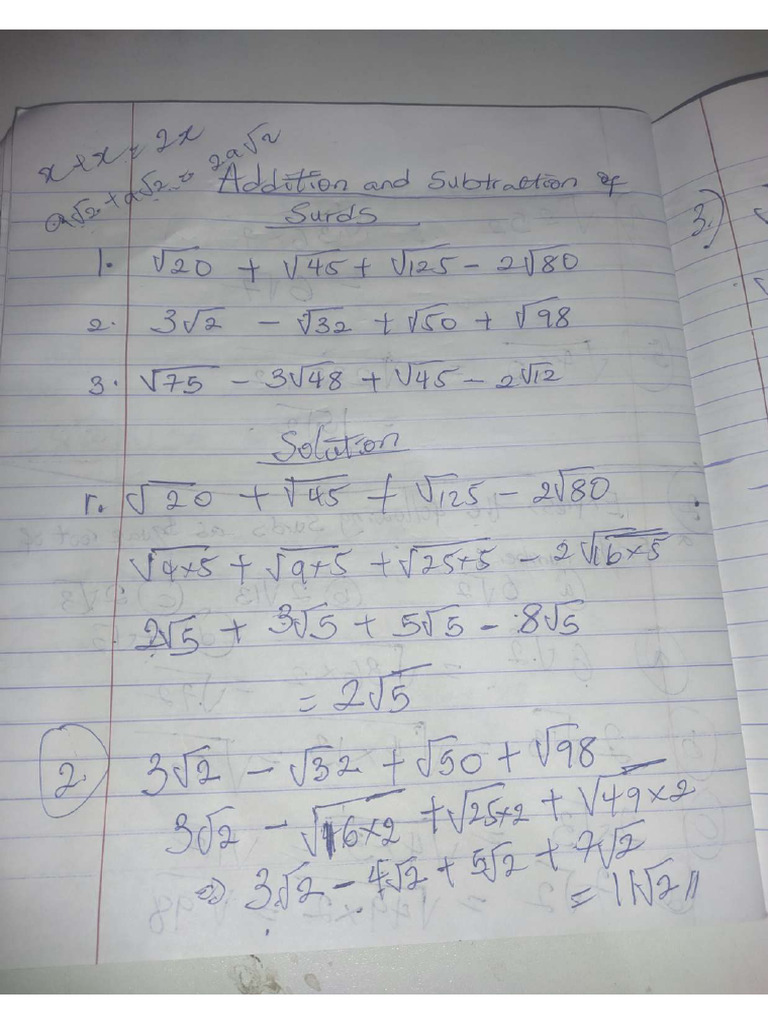 x + x = 2x
a√2 + a√2 = 2a√2
Addition and Subtraction of
Surds
1. √20 + √45 + √125 - 2√80
2. 3√2 - √32 + √50 + √98
3. √75 - 3√48 + √45 - 2√12
Solution
1. √20 + √45 + √125 - 2√80
√4×5 + √9×5 + √25×5 - 2√16×5
2√5 + 3√5 + 5√5 - 8√5
= 2√5
2. 3√2 - √32 + √50 + √98
3√2 - √16×2 + √25×2 + √49×2
⇒ 3√2 - 4√2 + 5√2 + 7√2
= 11√2 //
3.)